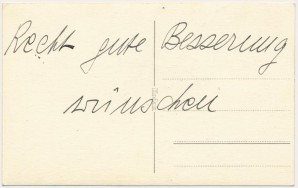 Recht gute Besserung
wünschen